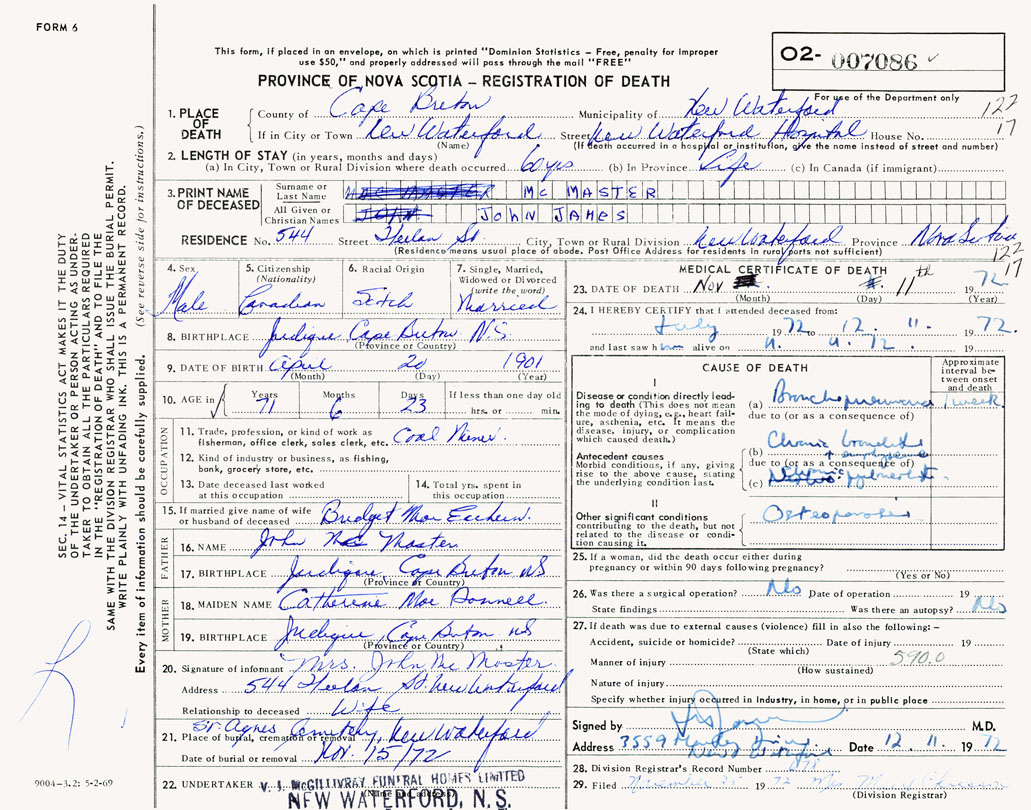 FORM 6
This form, if placed in an envelope, on which is printed "Dominion Statistics – Free, penalty for improper
use $50," and properly addressed will pass through the mail "FREE"
PROVINCE OF NOVA SCOTIA – REGISTRATION OF DEATH
02- 007086
For use of the Department only
122
17
1. PLACE OF DEATH
County of Cape Breton Municipality of New Waterford
If in City or Town New Waterford Street New Waterford Hospital House No.
(Name) (If death occurred in a hospital or institution, give the name instead of street and number)
2. LENGTH OF STAY (in years, months and days)
(a) In City, Town or Rural Division where death occurred 60 yrs (b) In Province Life (c) In Canada (if immigrant)
3. PRINT NAME OF DECEASED
Surname or Last Name MAC MASTER MC MASTER
All Given or Christian Names JOHN JOHN JAMES
RESIDENCE No. 544 Street Heelan St City, Town or Rural Division New Waterford Province Nova Scotia
(Residence means usual place of abode. Post Office Address for residents in rural parts not sufficient)
122
17
4. Sex
Male
5. Citizenship
(Nationality)
Canadian
6. Racial Origin
Scotch
7. Single, Married,
Widowed or Divorced
(write the word)
Married
8. BIRTHPLACE Judique Cape Breton N.S
(Province or Country)
9. DATE OF BIRTH April 20 1901
(Month) (Day) (Year)
10. AGE in Years Months Days If less than one day old
71 6 23 hrs. or min.
OCCUPATION
11. Trade, profession, or kind of work as
fisherman, office clerk, sales clerk, etc. Coal Miner.
12. Kind of industry or business, as fishing,
bank, grocery store, etc.
13. Date deceased last worked
at this occupation
14. Total yrs. spent in
this occupation
15. If married give name of wife
or husband of deceased Bridget Mac Eachern.
FATHER
16. NAME John Mac Master
17. BIRTHPLACE Judique, Cape Breton NS
(Province or Country)
MOTHER
18. MAIDEN NAME Catherine Mac Donnell
19. BIRTHPLACE Judique, Cape Breton NS
(Province or Country)
20. Signature of informant Mrs. John Mc Master
Address 544 Heelan St New Waterford
Relationship to deceased Wife
St. Agnes Cemetery, New Waterford
21. Place of burial, cremation or removal
Date of burial or removal Nov. 15/72
22. UNDERTAKER V. J. McGILLIVRAY FUNERAL HOMES LIMITED
(Name and address)
NEW WATERFORD, N.S.
MEDICAL CERTIFICATE OF DEATH
23. DATE OF DEATH Nov 11th 1972
(Month) (Day) (Year)
24. I HEREBY CERTIFY that I attended deceased from:
July 1972 to 12. 11. 1972.
and last saw him alive on 11. 11. 72. 19
CAUSE OF DEATH
Approximate
interval be-
tween onset
and death
I
Disease or condition directly lead-
ing to death (This does not mean
the mode of dying, e.g., heart fail-
ure, asthenia, etc. It means the
disease, injury, or complication
which caused death.)
(a) Bronchopneumonia 1 week.
due to (or as a consequence of)
Antecedent causes
Morbid conditions, if any, giving
rise to the above cause, stating
the underlying condition last.
(b) Chronic bronchitis
+ emphysema
due to (or as a consequence of)
(c)
II
Other significant conditions
contributing to the death, but not
related to the disease or condi-
tion causing it.
Osteoporosis
25. If a woman, did the death occur either during
pregnancy or within 90 days following pregnancy?
(Yes or No)
26. Was there a surgical operation? No Date of operation 19
State findings Was there an autopsy? No
27. If death was due to external causes (violence) fill in also the following: –
Accident, suicide or homicide? Date of injury 19
(State which)
590.0
Manner of injury
(How sustained)
Nature of injury
Specify whether injury occurred in industry, in home, or in public place
Signed by M.D.
Address 3559 New Waterford Date 12. 11. 1972
28. Division Registrar's Record Number
29. Filed November 1972 Mrs
(Division Registrar)
SEC. 14 – VITAL STATISTICS ACT MAKES IT THE DUTY
OF THE UNDERTAKER OR PERSON ACTING AS UNDER-
TAKER TO OBTAIN ALL THE PARTICULARS REQUIRED
IN THE "REGISTRATION OF DEATH" AND TO FILE THE
SAME WITH THE DIVISION REGISTRAR WHO SHALL ISSUE THE BURIAL PERMIT.
WRITE PLAINLY WITH UNFADING INK. THIS IS A PERMANENT RECORD.
Every item of information should be carefully supplied. (See reverse side for instructions.)
9004–3.2: 5-2-69